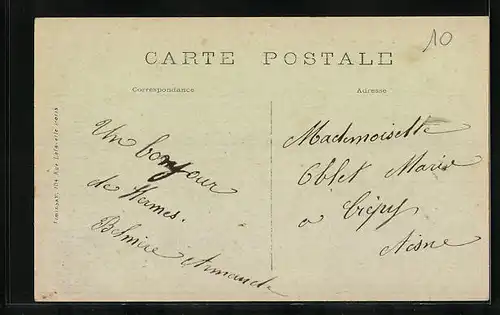 10
CARTE POSTALE
Correspondance
Adresse
Un bonjour
de Hermes.
Armande
Mademoiselle
Oblet Marie
à Crépy
Aisne